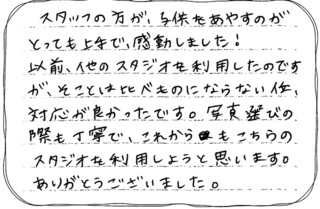 スタッフの方が、子供をあやすのが
とっても上手で、感動しました！
以前、他のスタジオを利用したのです
が、そことは比べものにならない位、
対応が良かったです。写真選びの
際も丁寧で、これからもこちらの
スタジオを利用しようと思います。
ありがとうございました。